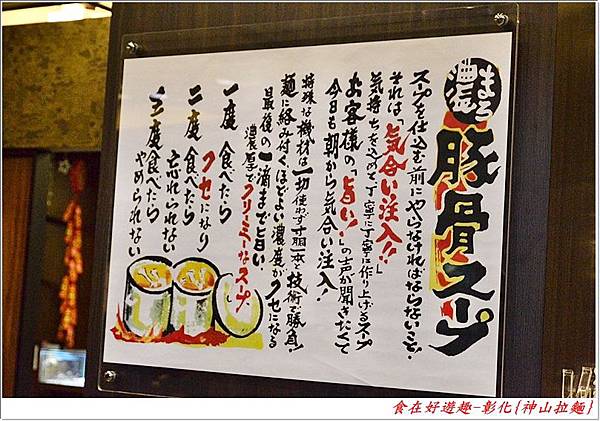 濃まろ
豚骨スープ
スープを仕込む前にやらなければならないこと、
それは「気合い注入!!」
気持ちを込めて丁寧に丁寧に作り上げるスープ
お客様の「旨い!」の声が聞きたくて
今日も朝から気合い注入!
特殊な機材は一切使わず寸胴一本と技術で勝負!
麺に絡み付く、ほどよい濃度がクセになる
最後の一滴まで旨い
濃厚でクリーミーなスープ
一度食べたら
二度食べたら
クセになり
忘れられない
三度食べたら
やめられない
食在好遊趣-彰化{神山拉麵}